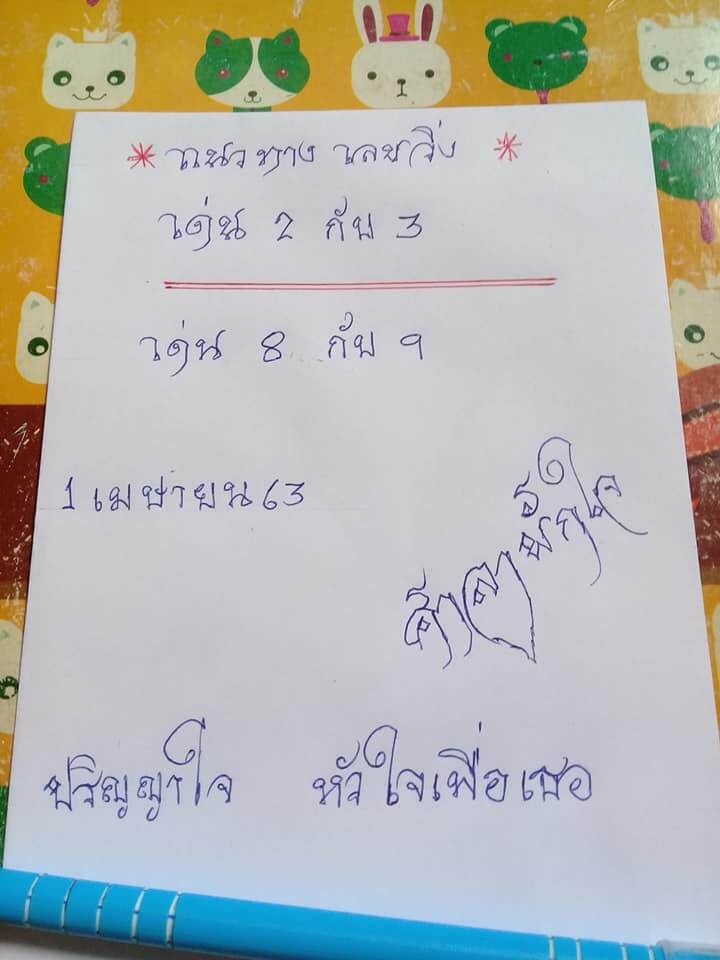 * แนวทาง เลขวิ่ง *
เด่น 2 กับ 3
เด่น 8 กับ 9
1 เมษายน 63
ปริญญาใจ หัวใจเพื่อเธอ